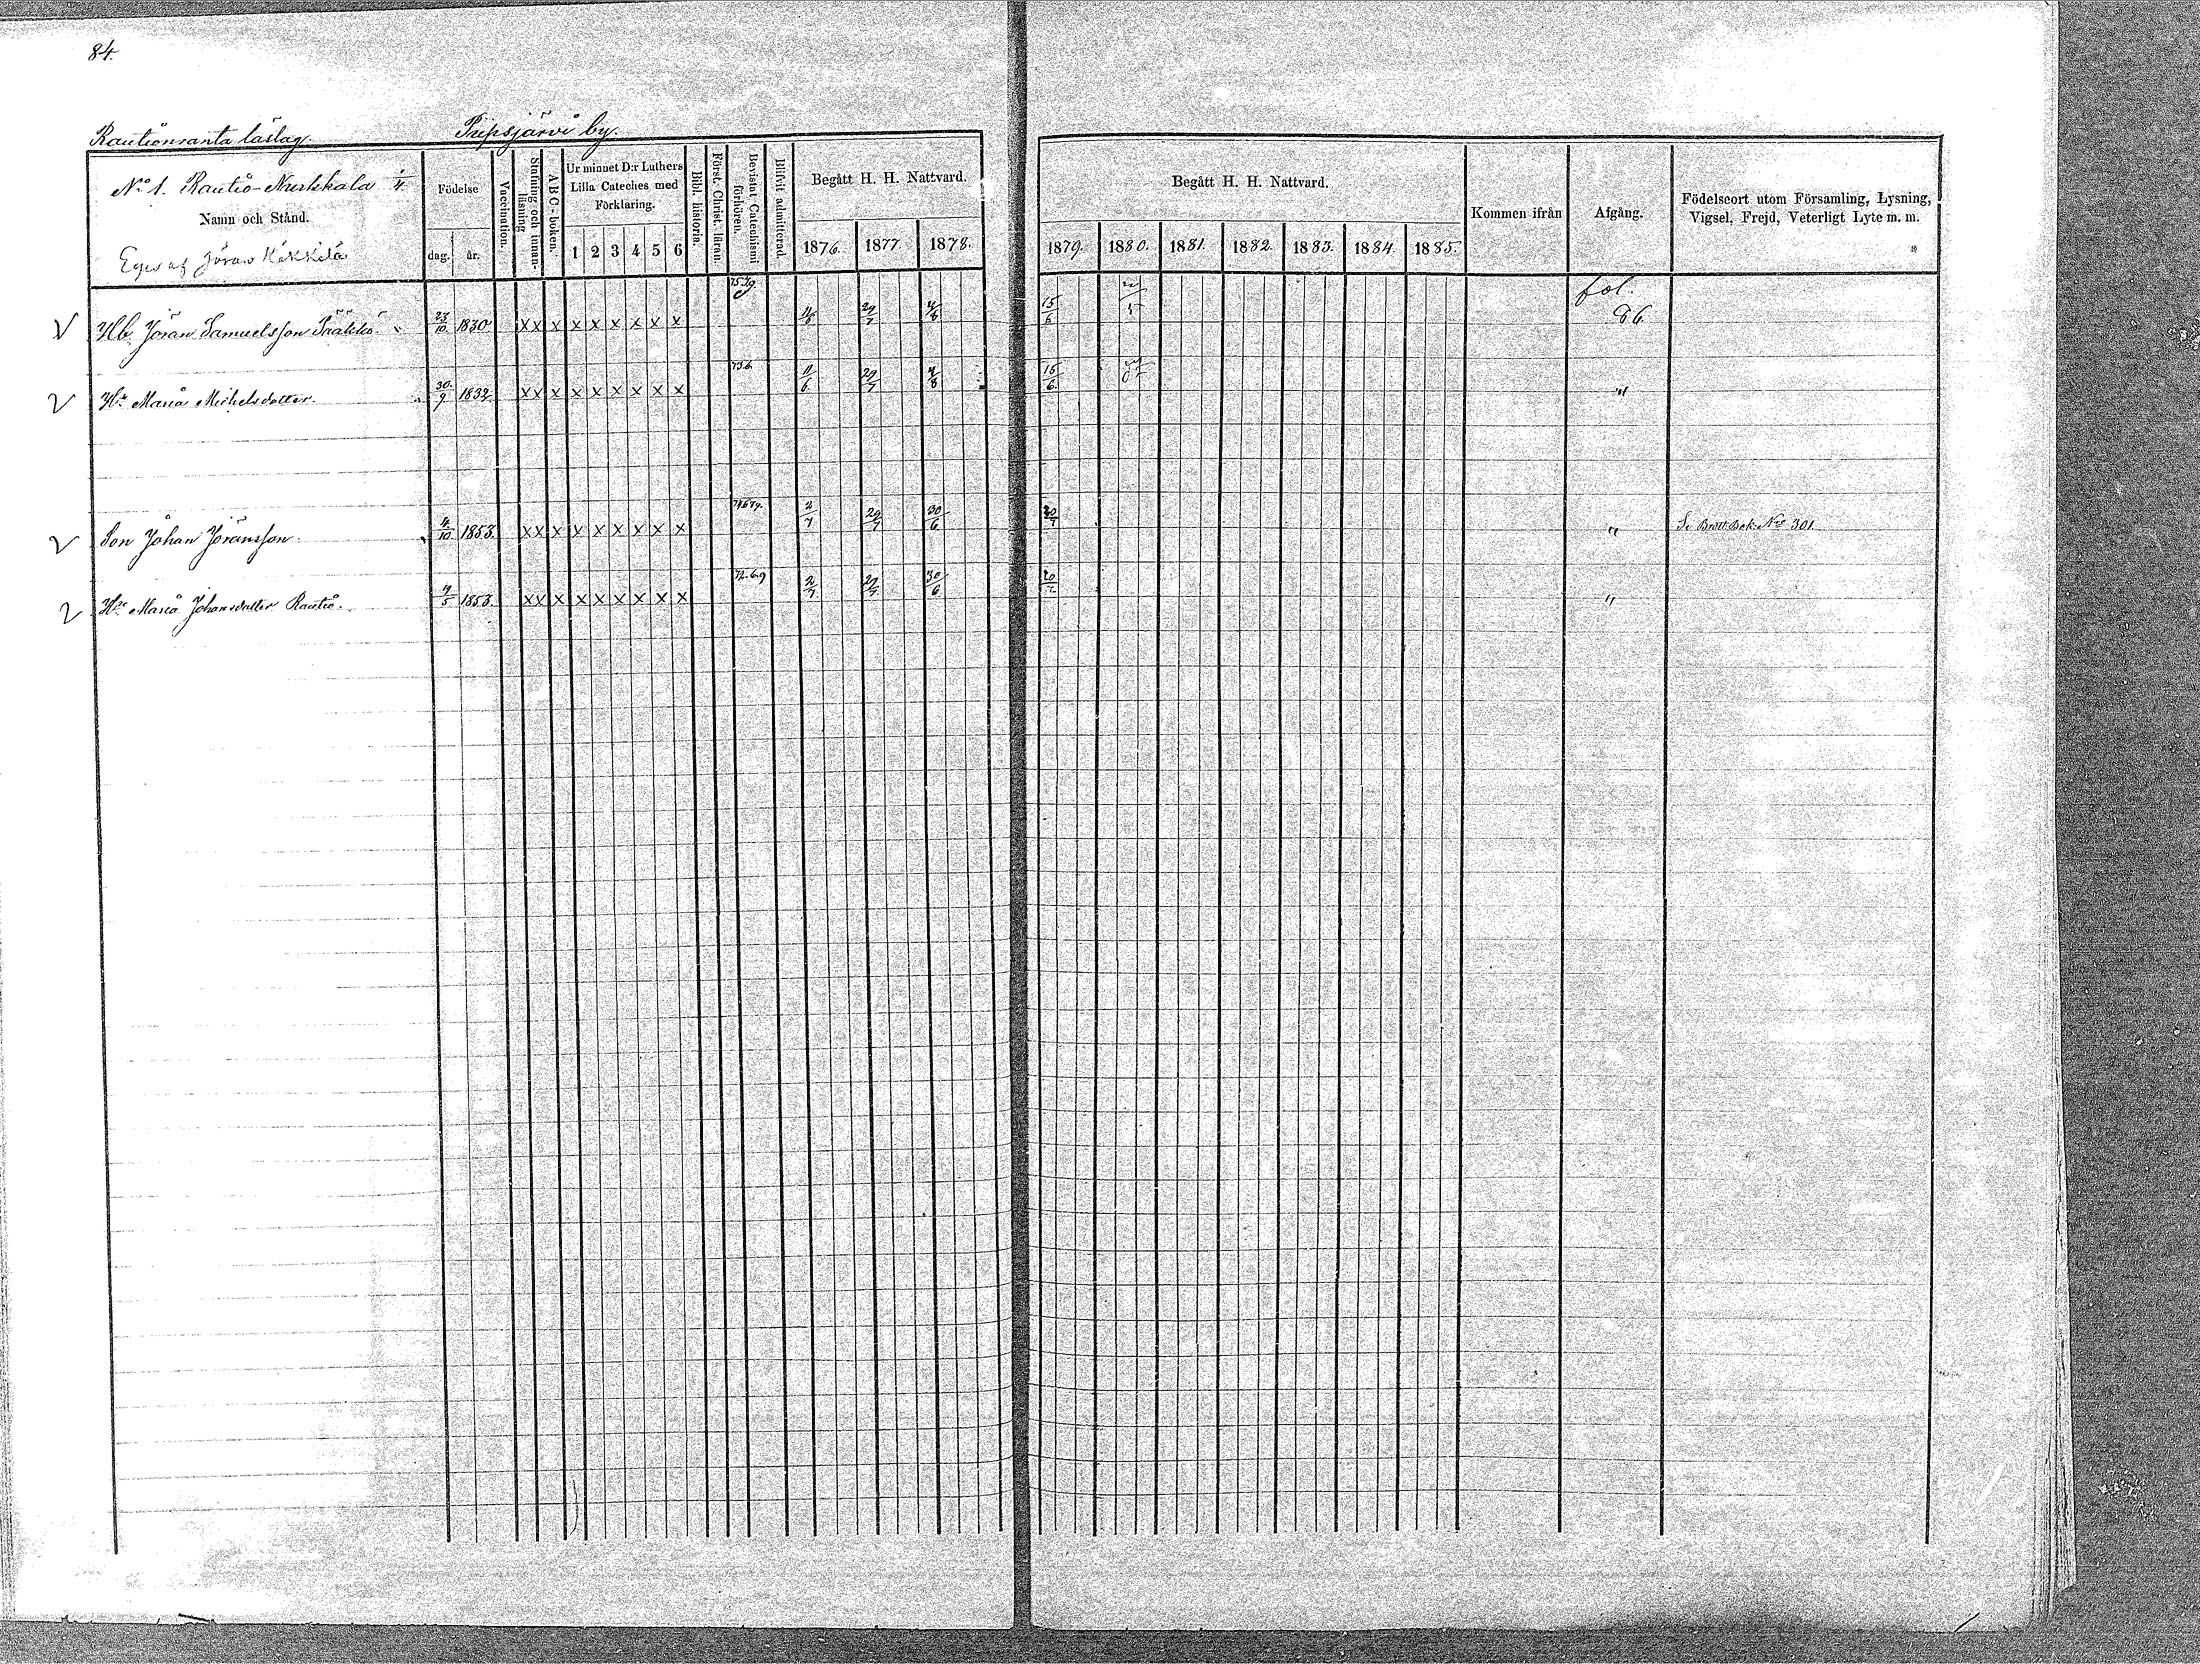 84.
Rautionranta läslag. Piipsjärvi by.
No 1. Rautio-Nurkkala 1/4
Namn och Stånd.
Eges af Jöran Kekkilä
Födelse
dag. år.
Vaccination.
Stafning och innan-läsning
A B C-boken.
Ur minnet D:r Luthers
Lilla Cateches med
Förklaring.
1 2 3 4 5 6
Bibl. historia.
Först. Christ. läran.
Bevistat Catechismi förhören.
Blifvit admitterad
Begått H. H. Nattvard.
1876. 1877. 1878.
Begått H. H. Nattvard.
1879. 1880. 1881. 1882. 1883. 1884. 1885.
Kommen ifrån
Afgång.
Födelseort utom Församling, Lysning,
Vigsel, Frejd, Veterligt Lyte m. m.
fol.
Hb. Jöran Samuelsson Pääkkö 23/10 1830 x x x x x x x x x 29/7 15/6 86
Hu Maria Michelsdotter. 30/9 1832 x x x x x x x x x 11/6 29/7 15/6 "
Son Johan Jöransson. 4/10 1853. x x x x x x x x x 2/7 29/7 30/6 20/7 " Se Brott. Bok. No 301
Hu Maria Johansdotter Rautio. 4/5 1853. x x x x x x x x x 2/7 29/7 30/6 20/7 "